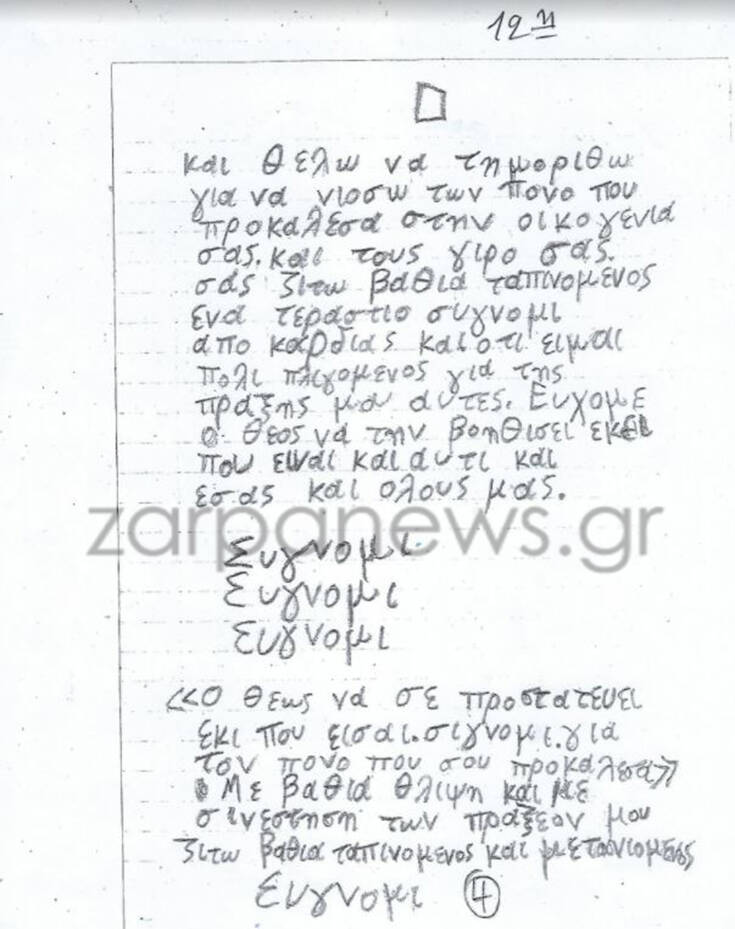 12η
και θελω να τημοριθω
για να νιοσω των πονο που
προκαλεσα στην οικογενια
σας. και τους γιρο σας.
σας ζιτω βαθια ταπινομενος
ενα τεραστιο συγνομι
απο καρδιας και οτι ειμαι
πολι πλιγομενος για της
πραξης μου αυτες. Ευχομε
ο θεος να την βοηθισει εκει
που ειναι και αυτι και
εσας και ολους μας.
zarpanews.gr
Συγνομι
Συγνομι
Συγνομι
<<Ο θεως να σε προστατευει
εκι που εισαι. σιγνομι. για
τον πονο που σου προκαλεσα>>
Με βαθια θλιψη και με
σινεστηση των πραξεον μου
ζιτω βαθια ταπινομενος και
Συγνομι 4